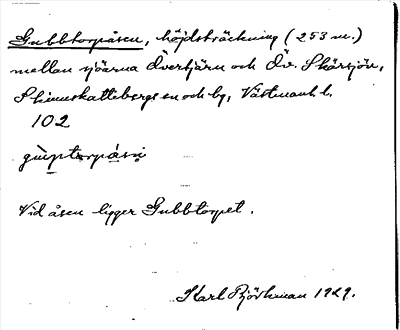 Gubbtorpåsen, höjdsträckning (253 m.)
mellan sjöarna Övertjärn och Öv. Skärsjön,
Skinnskattebergs sn och by, Västmanl. l.
102
Vid åsen ligger Gubbtorpet.
Karl Björkman 1929.